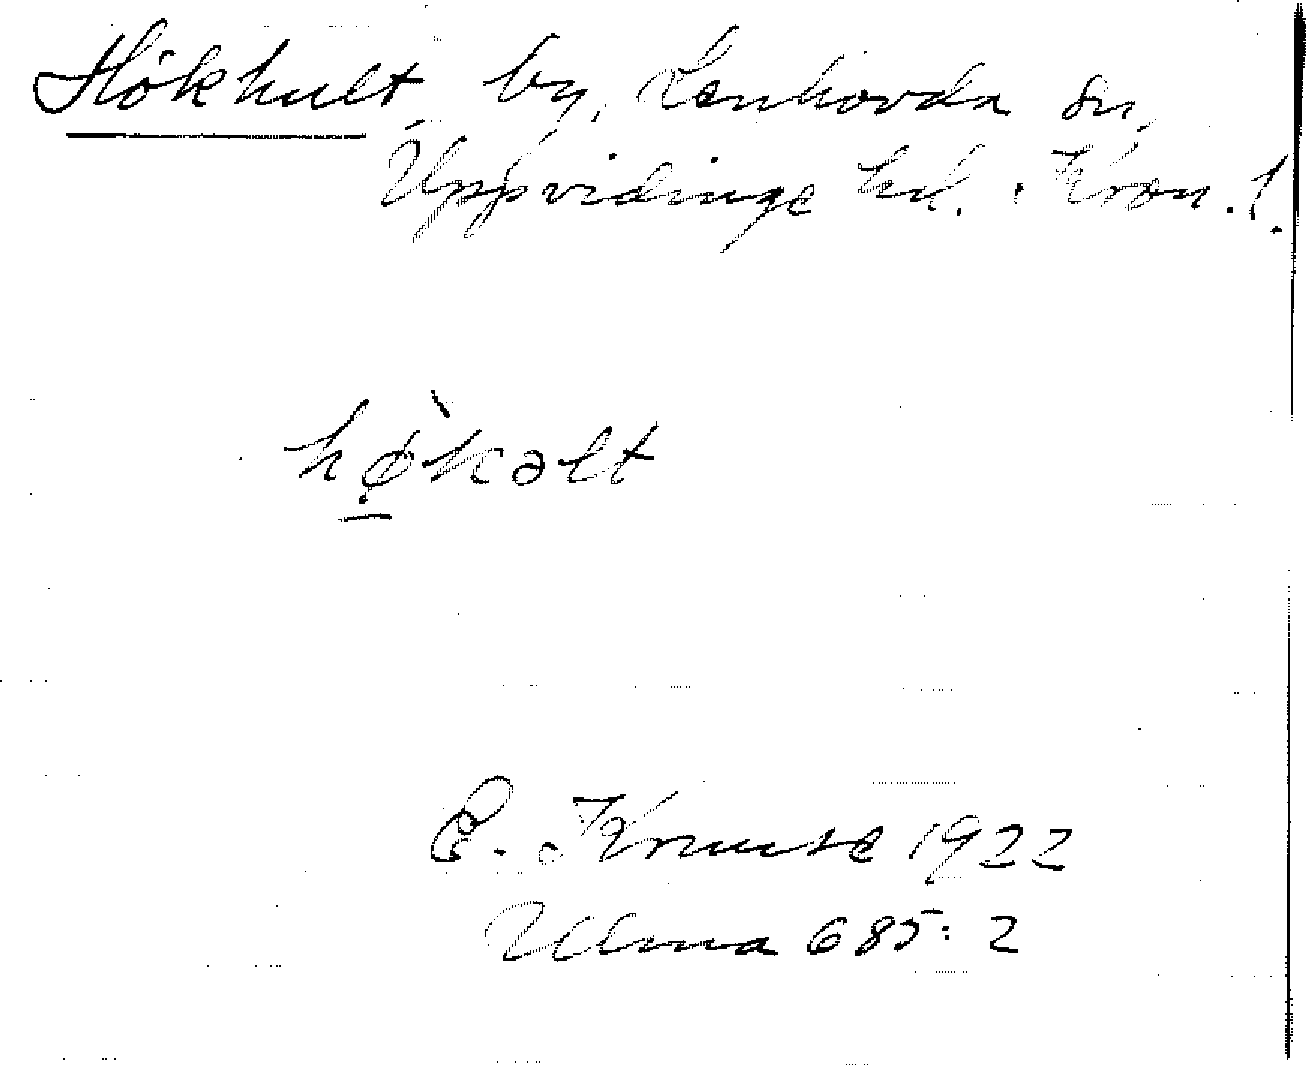 Hökhult, by, Lenhovda sn,
Uppvidinge hd. Kron. l.
hø̀kəlt
E. 1922
Ulma 685:2